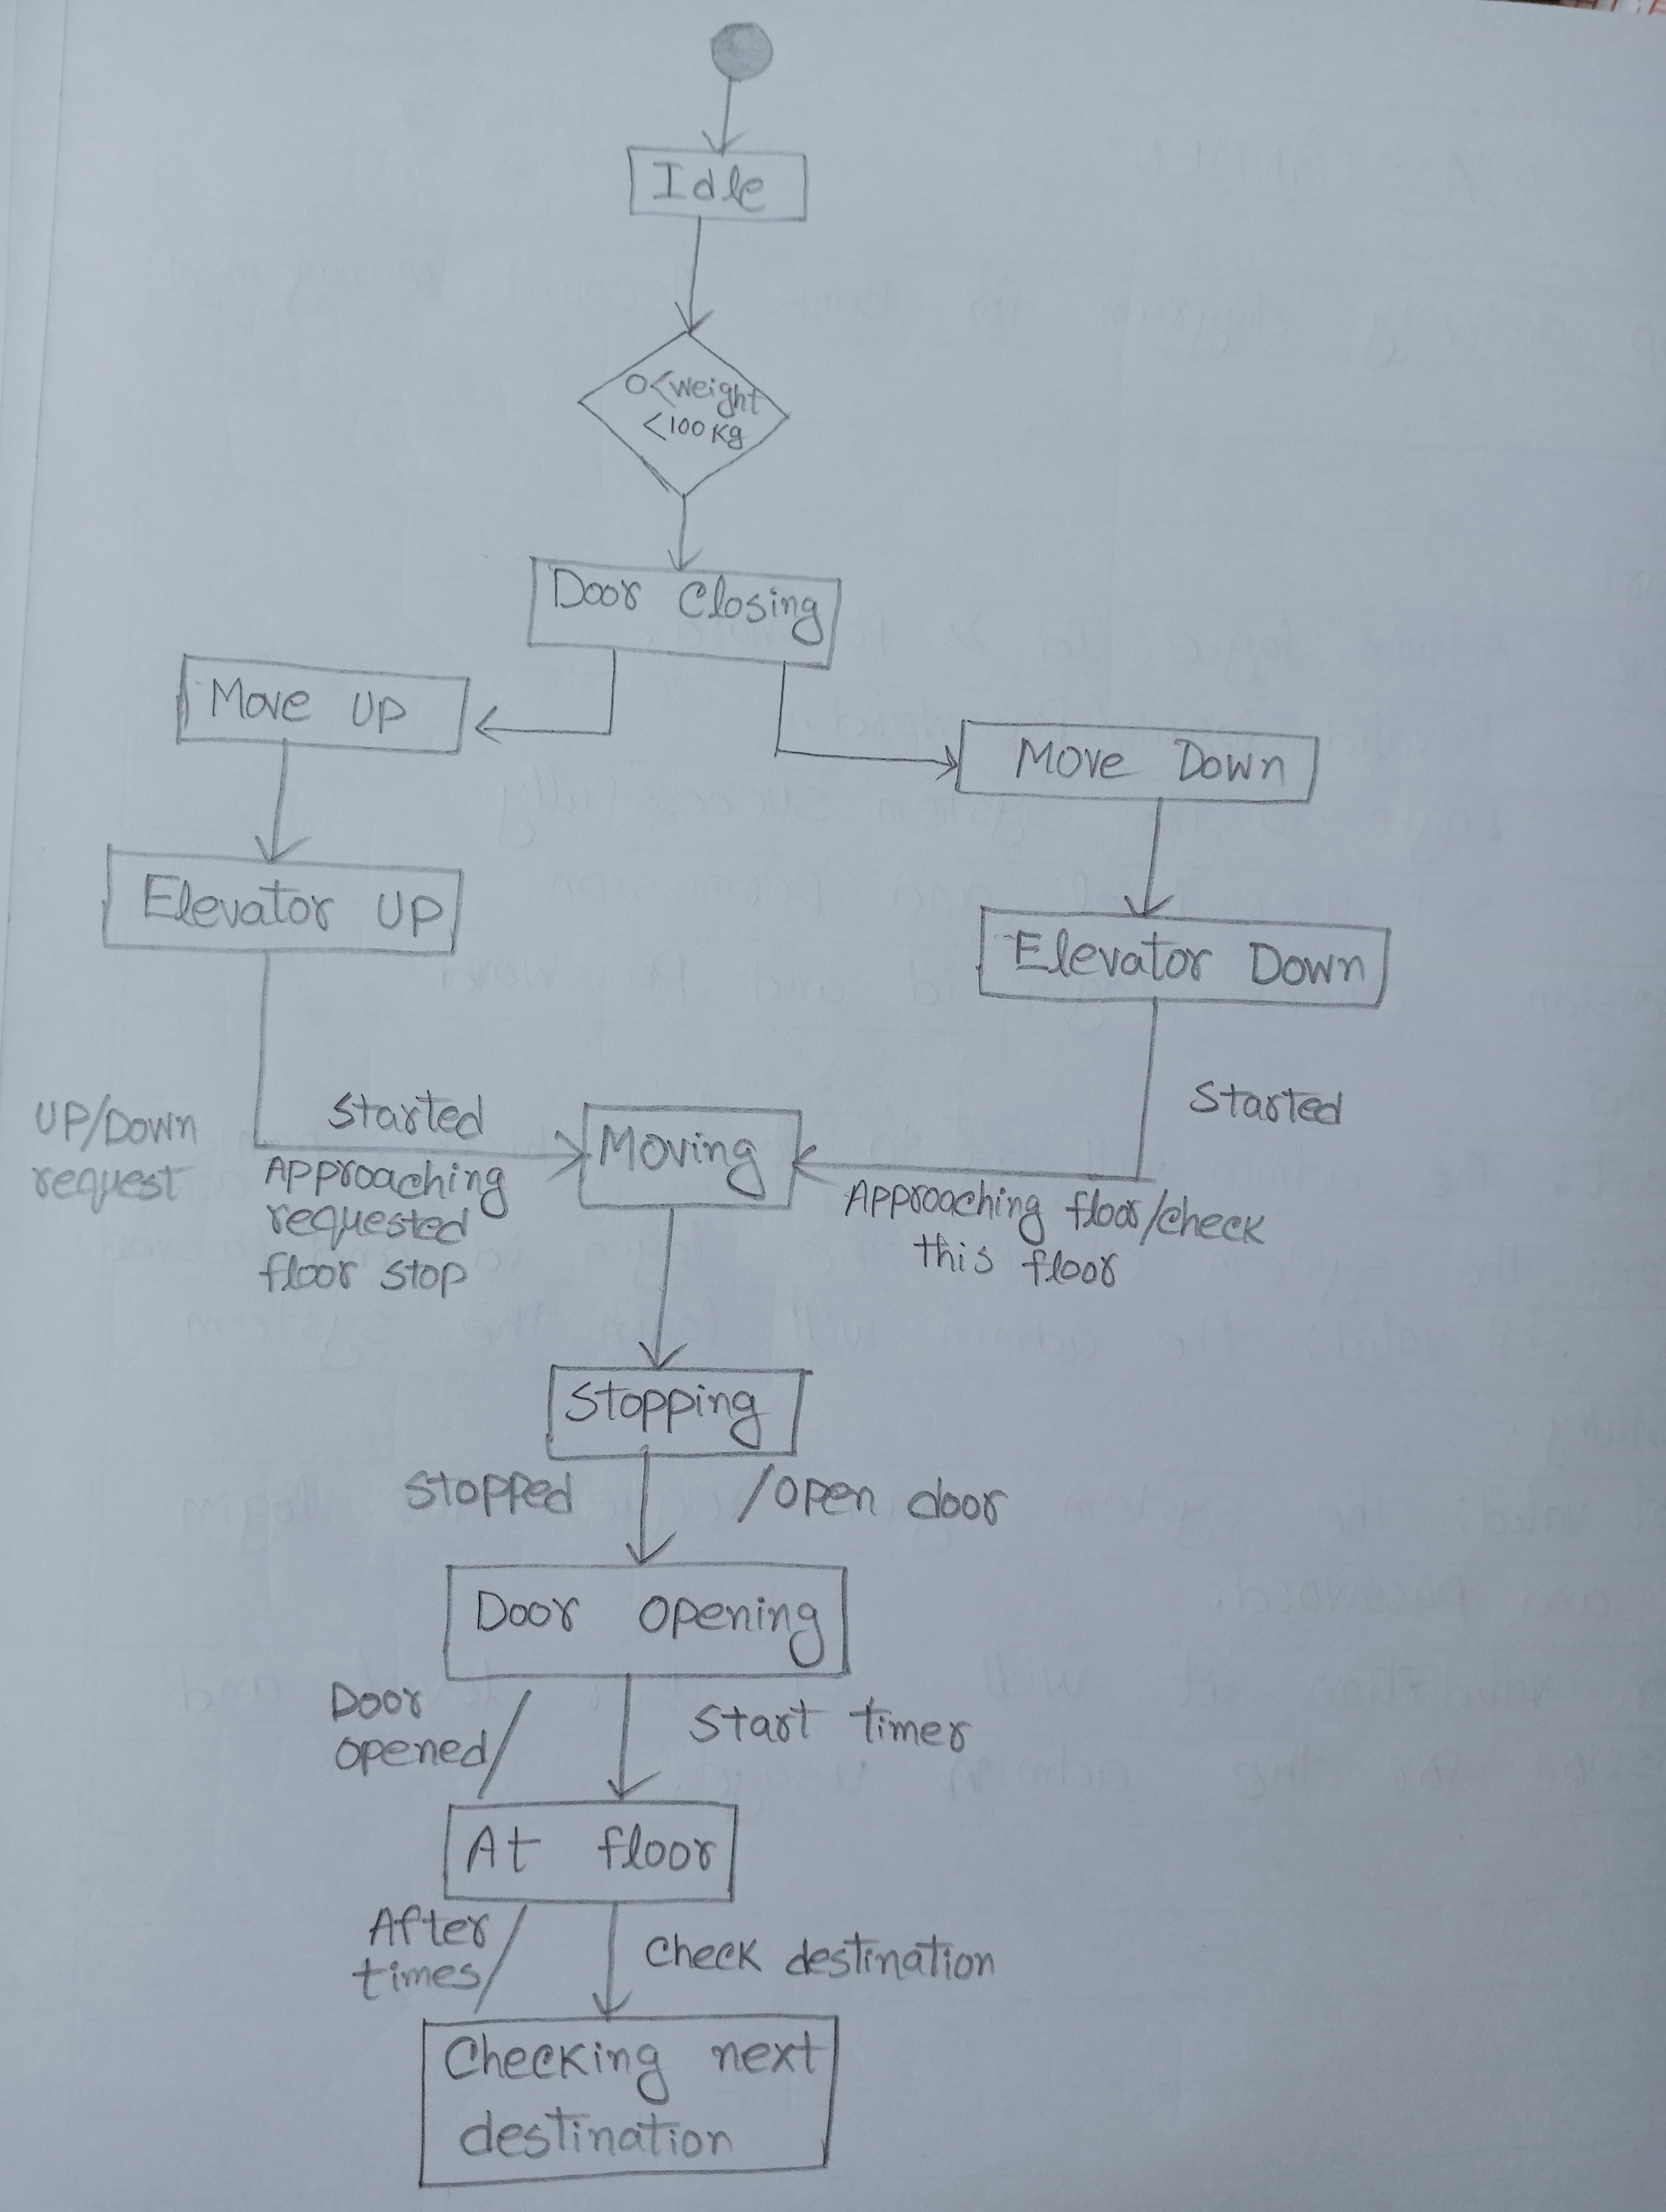 Idle
0<weight
<100 Kg
Door Closing
Move UP
Move Down
Elevator UP
Elevator Down
UP/Down
request
Started
Approaching
requested
floor stop
Moving
Started
Approaching floor/check
this floor
Stopping
Stopped
/open door
Door opening
Door
opened/
Start timer
At floor
After
times/
Check destination
Checking next
destination